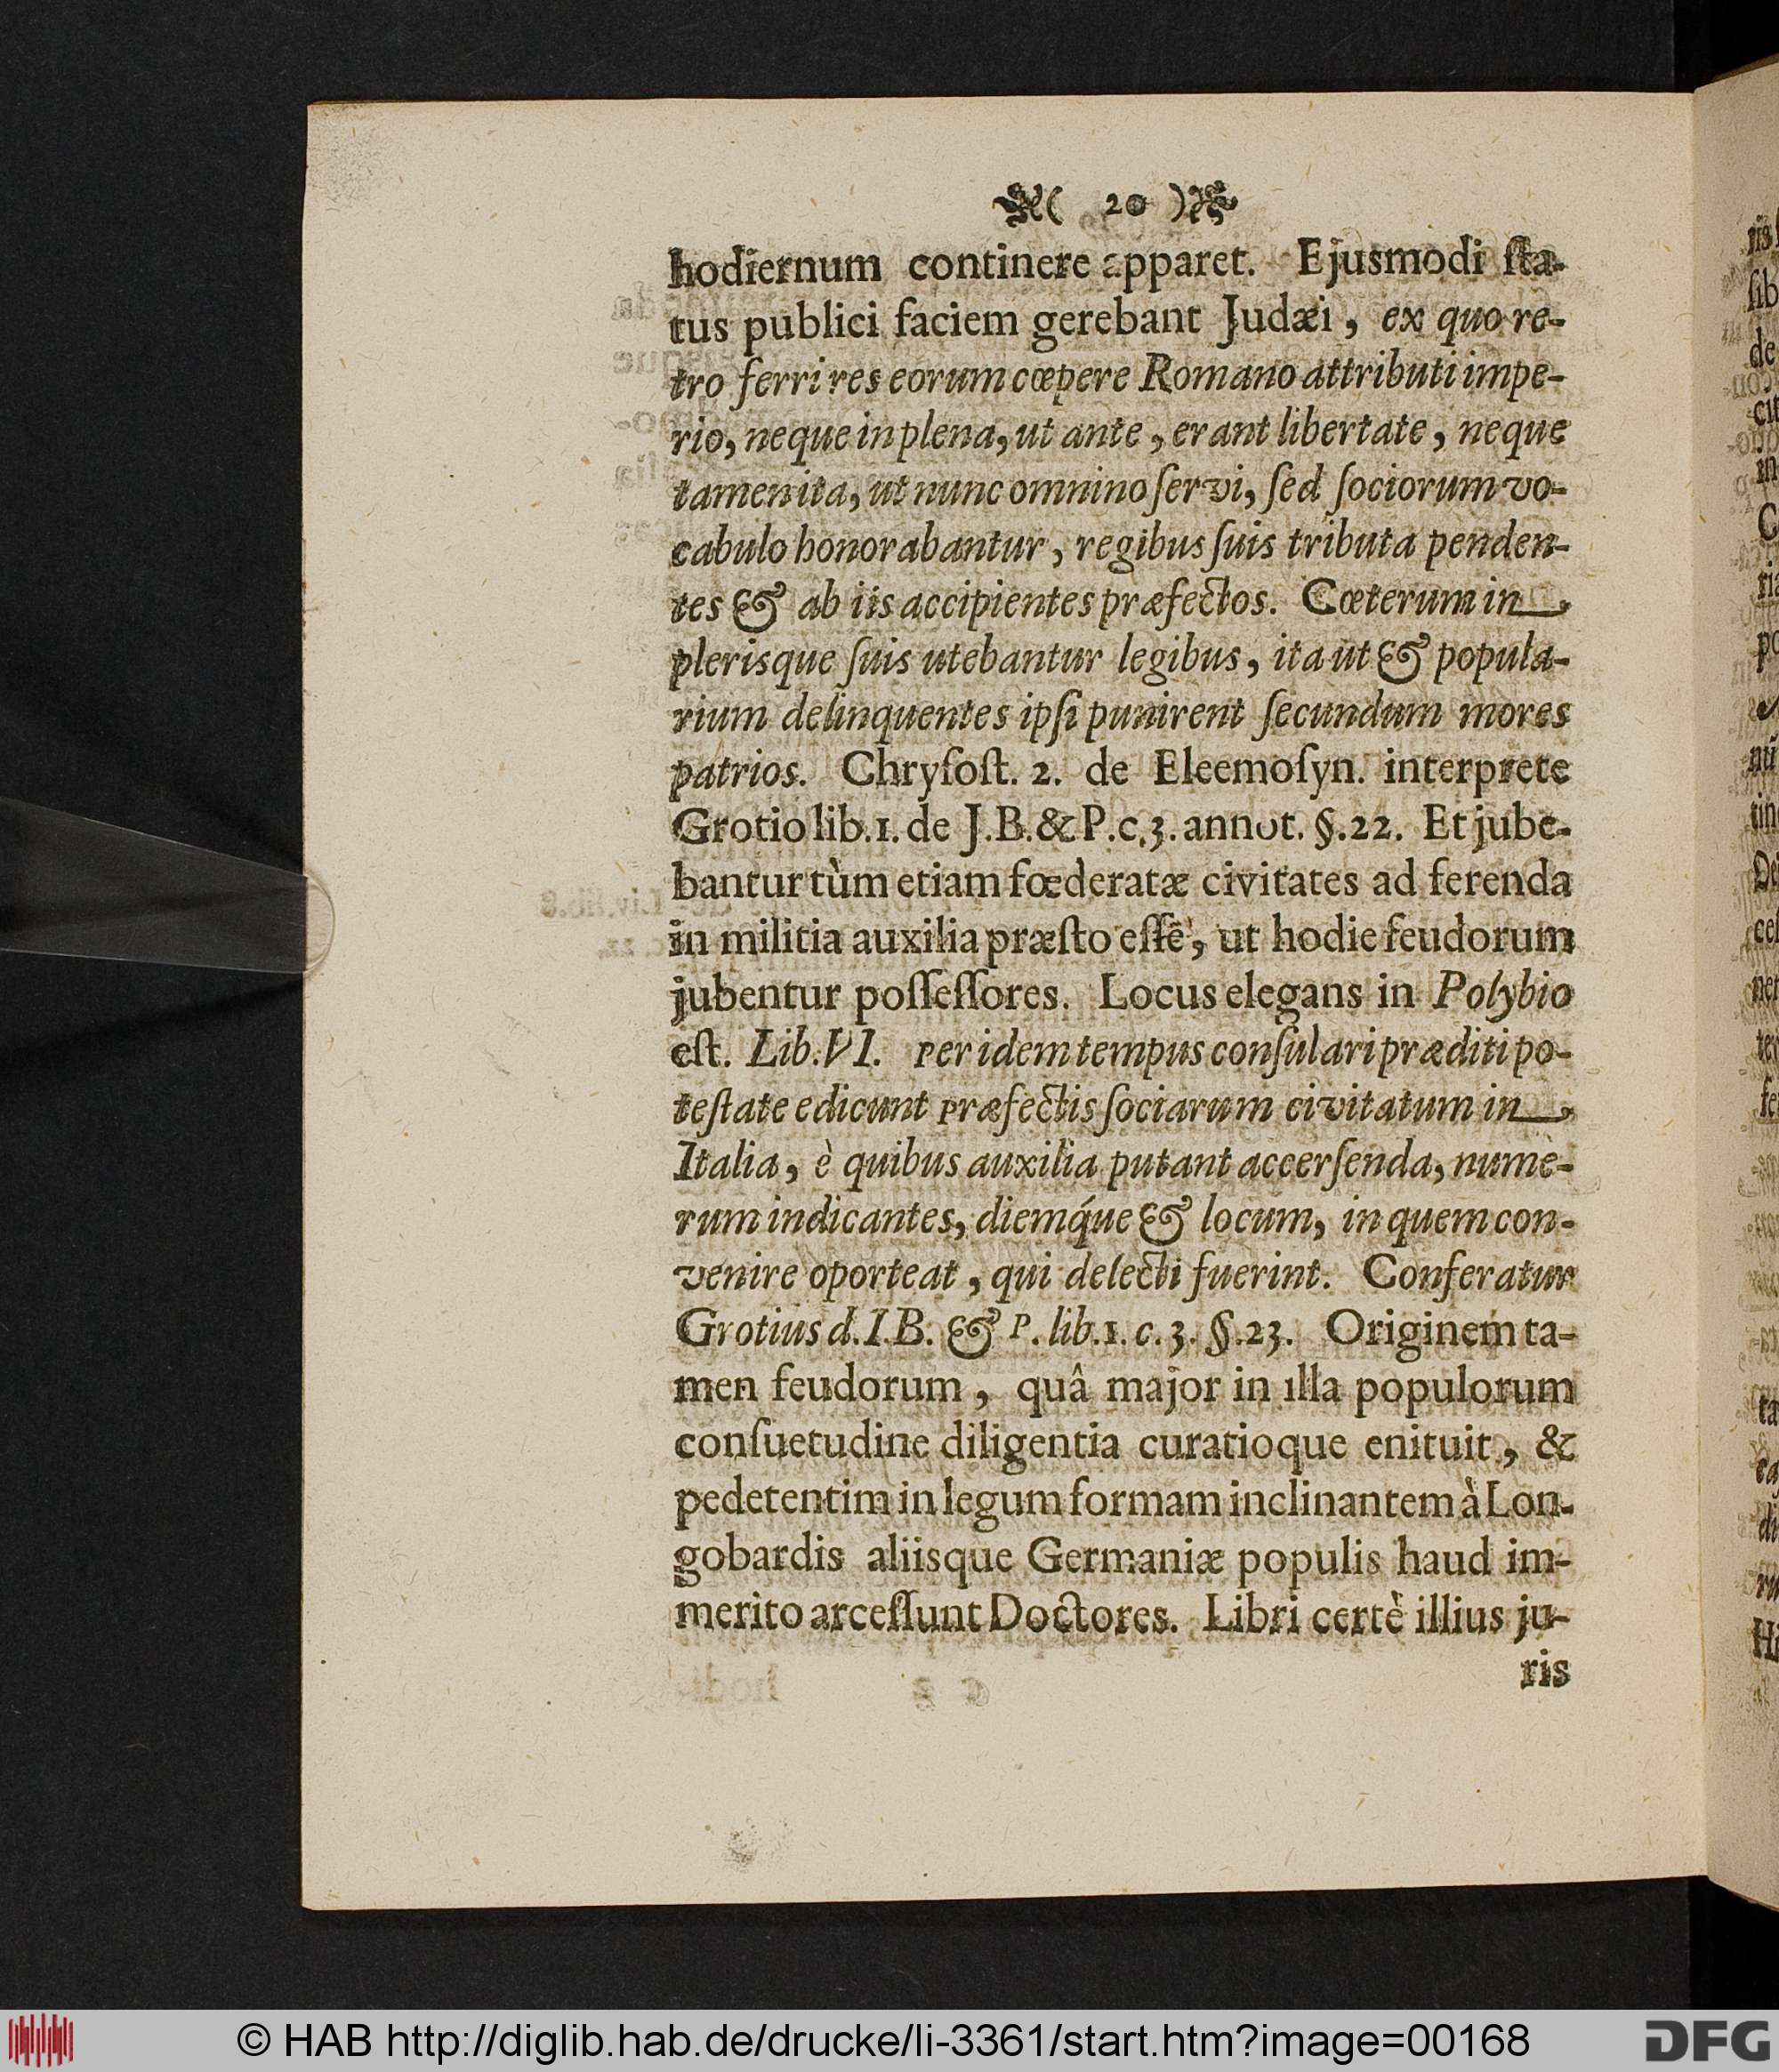 ( 20 )
hodiernum continere apparet. Ejusmodi ſta-
tus publici faciem gerebant Judæi, ex quo re-
tro ferri res eorum cœpere Romano attributi impe-
rio, neque in plena, ut ante, erant libertate, neque
tamen ita, ut nunc omnino ſervi, ſed ſociorum vo-
cabulo honorabantur, regibus ſuis tributa penden-
tes & ab iis accipientes præfectos. Cœterum in
plerisque ſuis utebantur legibus, ita ut & popula-
rium delinquentes ipſi punirent ſecundum mores
patrios. Chryſoſt. 2. de Eleemoſyn. interprete
Grotio lib.1. de J.B.&P.c.3. annot. §.22. Et jube-
bantur tùm etiam fœderatæ civitates ad ferenda
in militia auxilia præſto eſſe, ut hodie feudorum
jubentur poſſeſſores. Locus elegans in Polybio
eſt. Lib.VI. per idem tempus conſulari præditi po-
teſtate edicunt præfectis ſociarum civitatum in
Italia, è quibus auxilia putant accerſenda, nume-
rum indicantes, diemq́ue & locum, in quem con-
venire oporteat, qui delecti fuerint. Conferatur
Grotius d.I.B. & P. lib.1. c.3. §.23. Originem ta-
men feudorum, quâ major in illa populorum
conſuetudine diligentia curatioque enituit, &
pedetentim in legum formam inclinantem à Lon-
gobardis aliisque Germaniæ populis haud im-
merito arceſſunt Doctores. Libri certè illius ju-
ris
© HAB http://diglib.hab.de/drucke/li-3361/start.htm?image=00168
DFG